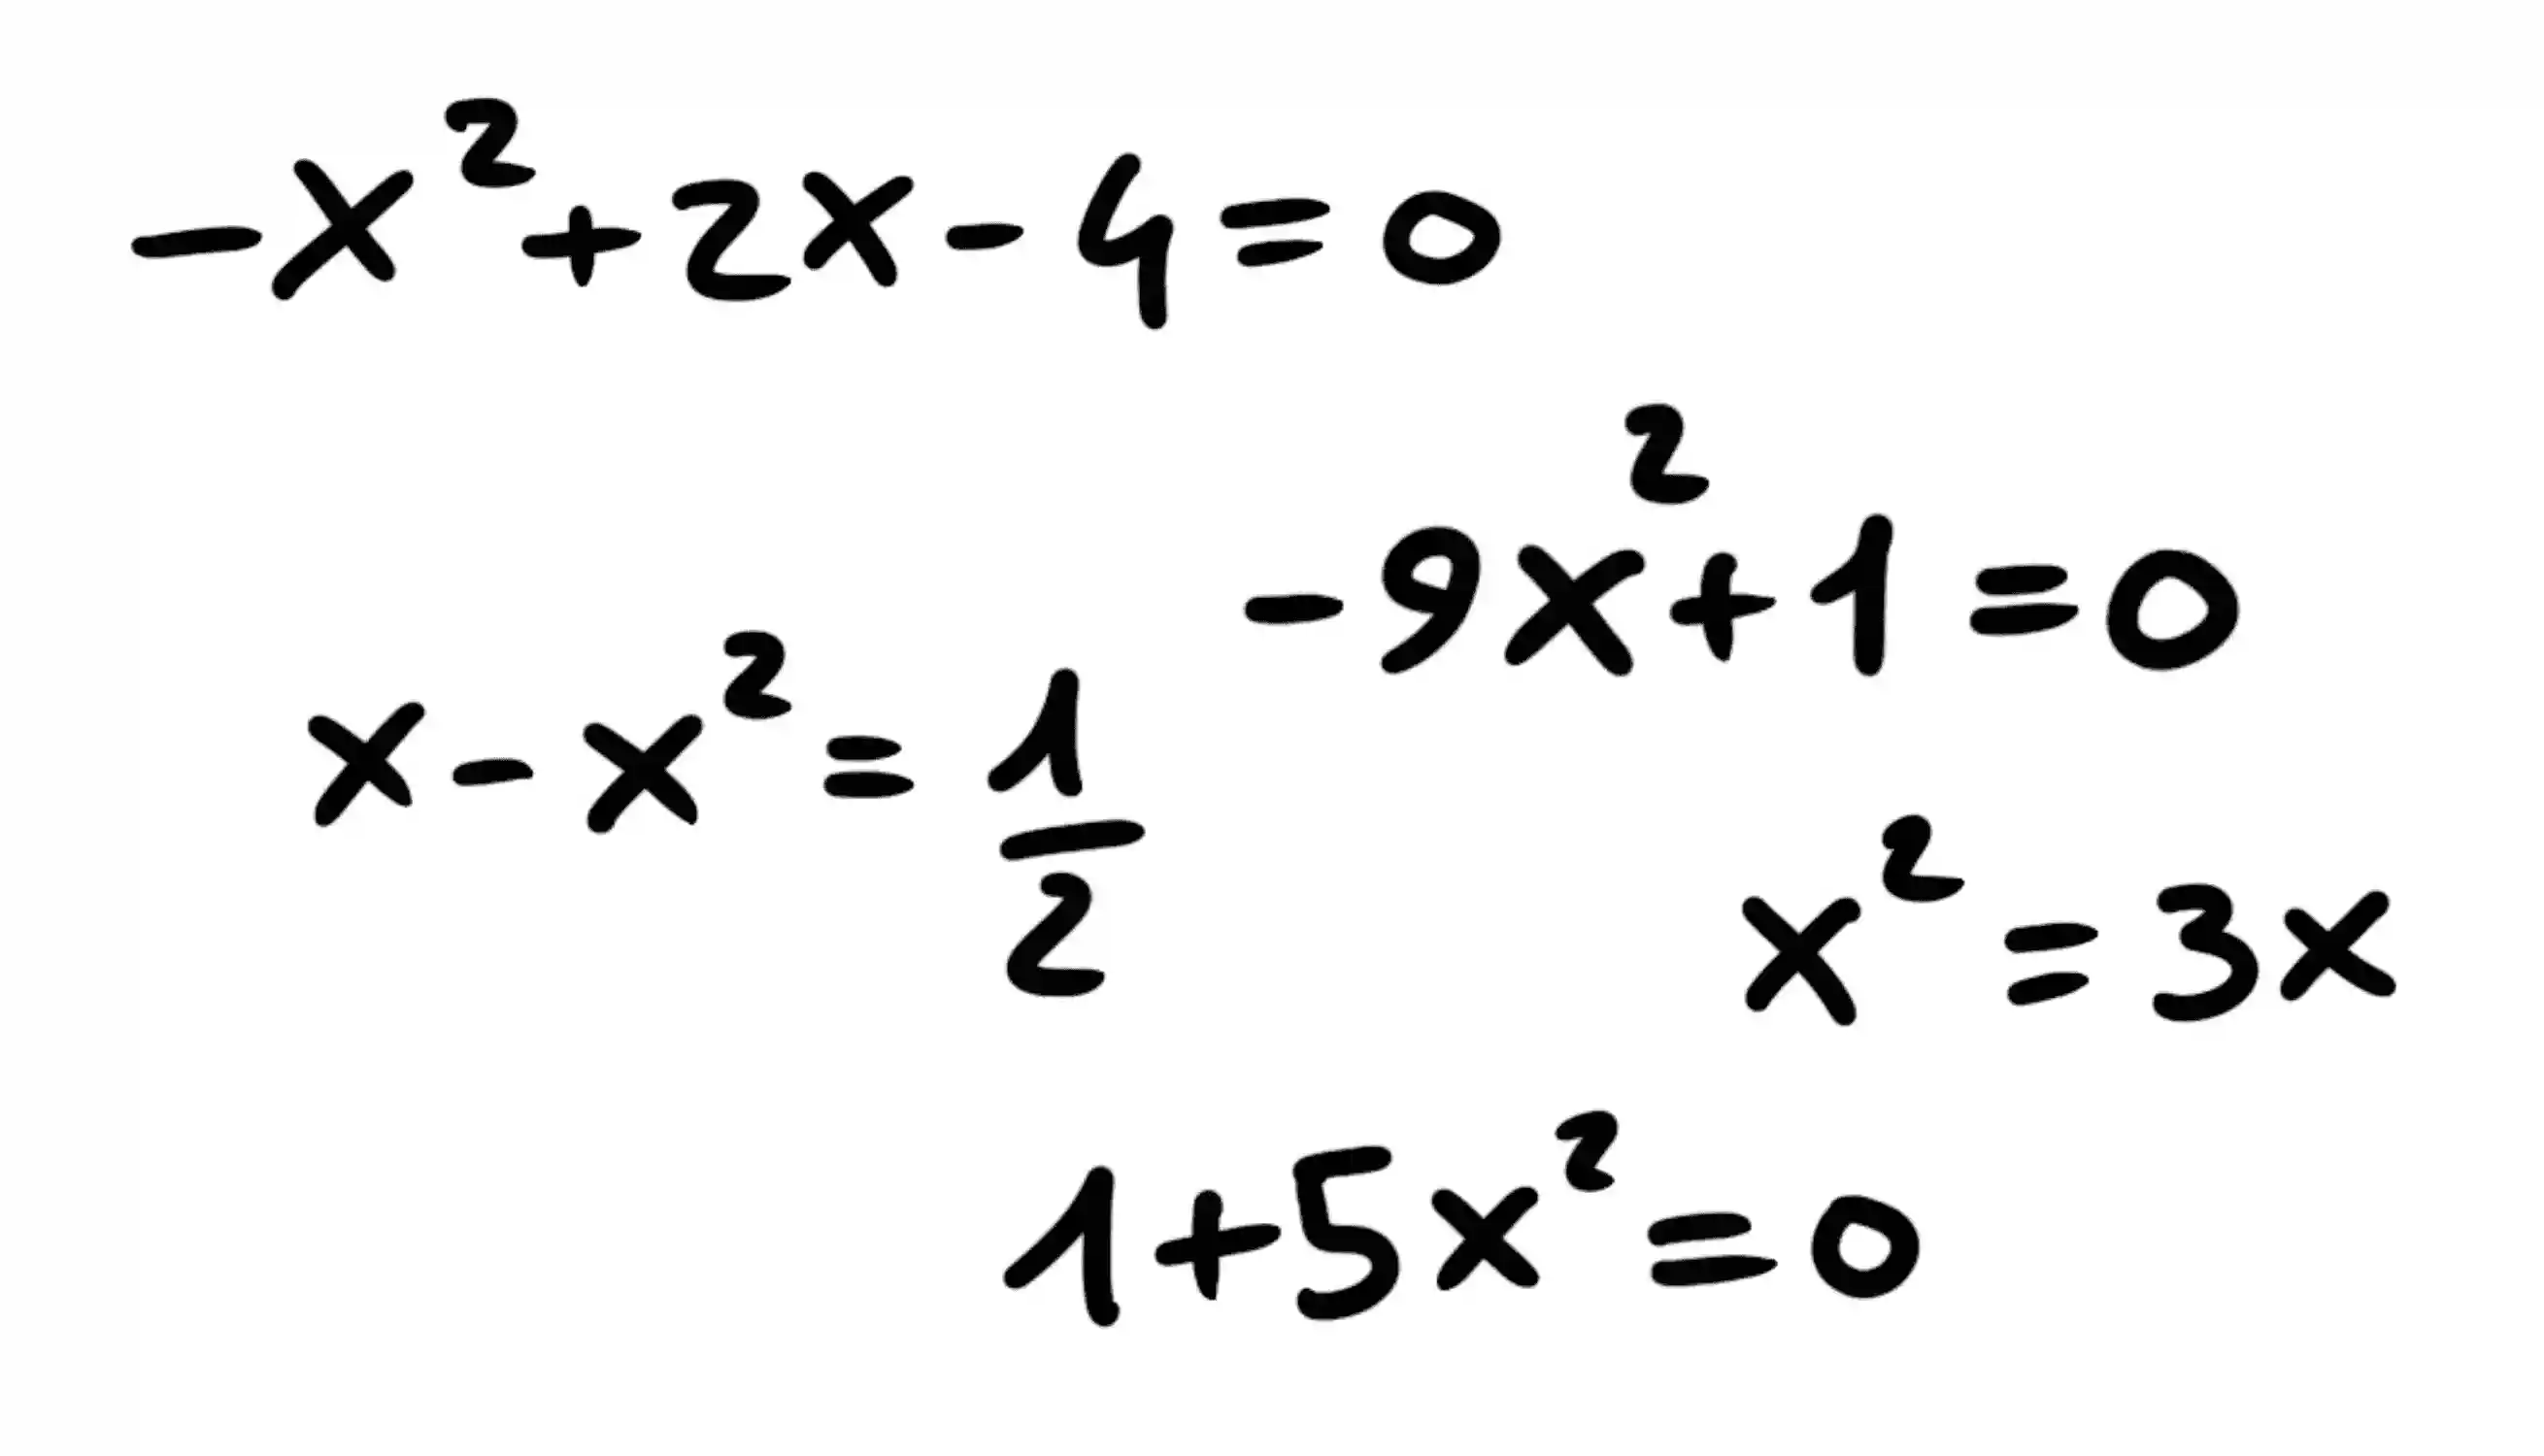 -x²+2x-4=0
-9x²+1=0
x-x²=1/2
x²=3x
1+5x²=0